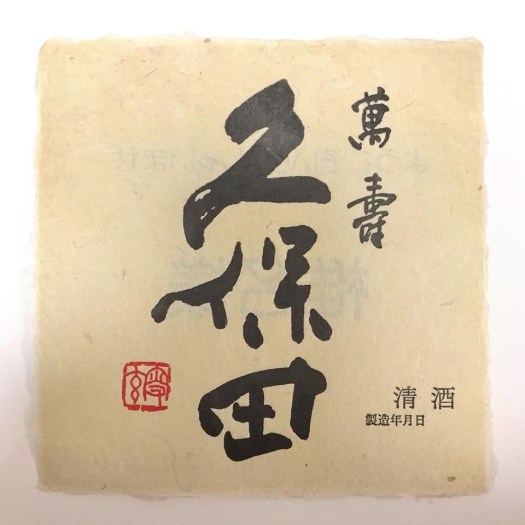 萬壽
久保田
清酒
製造年月日